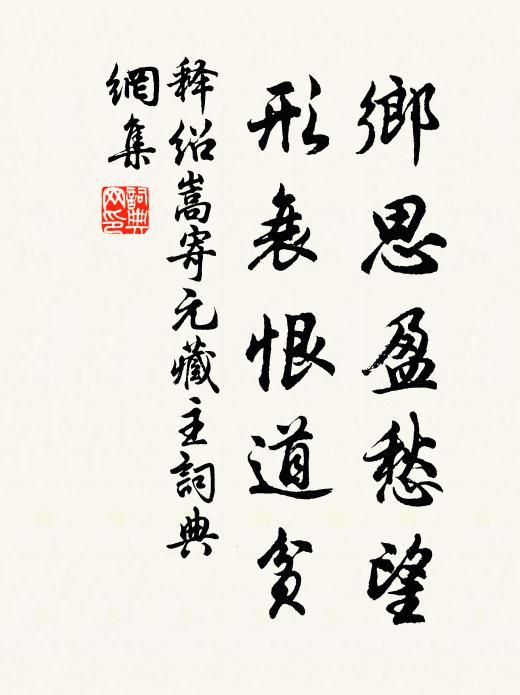 鄉思盈愁望
形衰恨道貧
释绍嵩寄元藏主詞典
網集
詞典网印